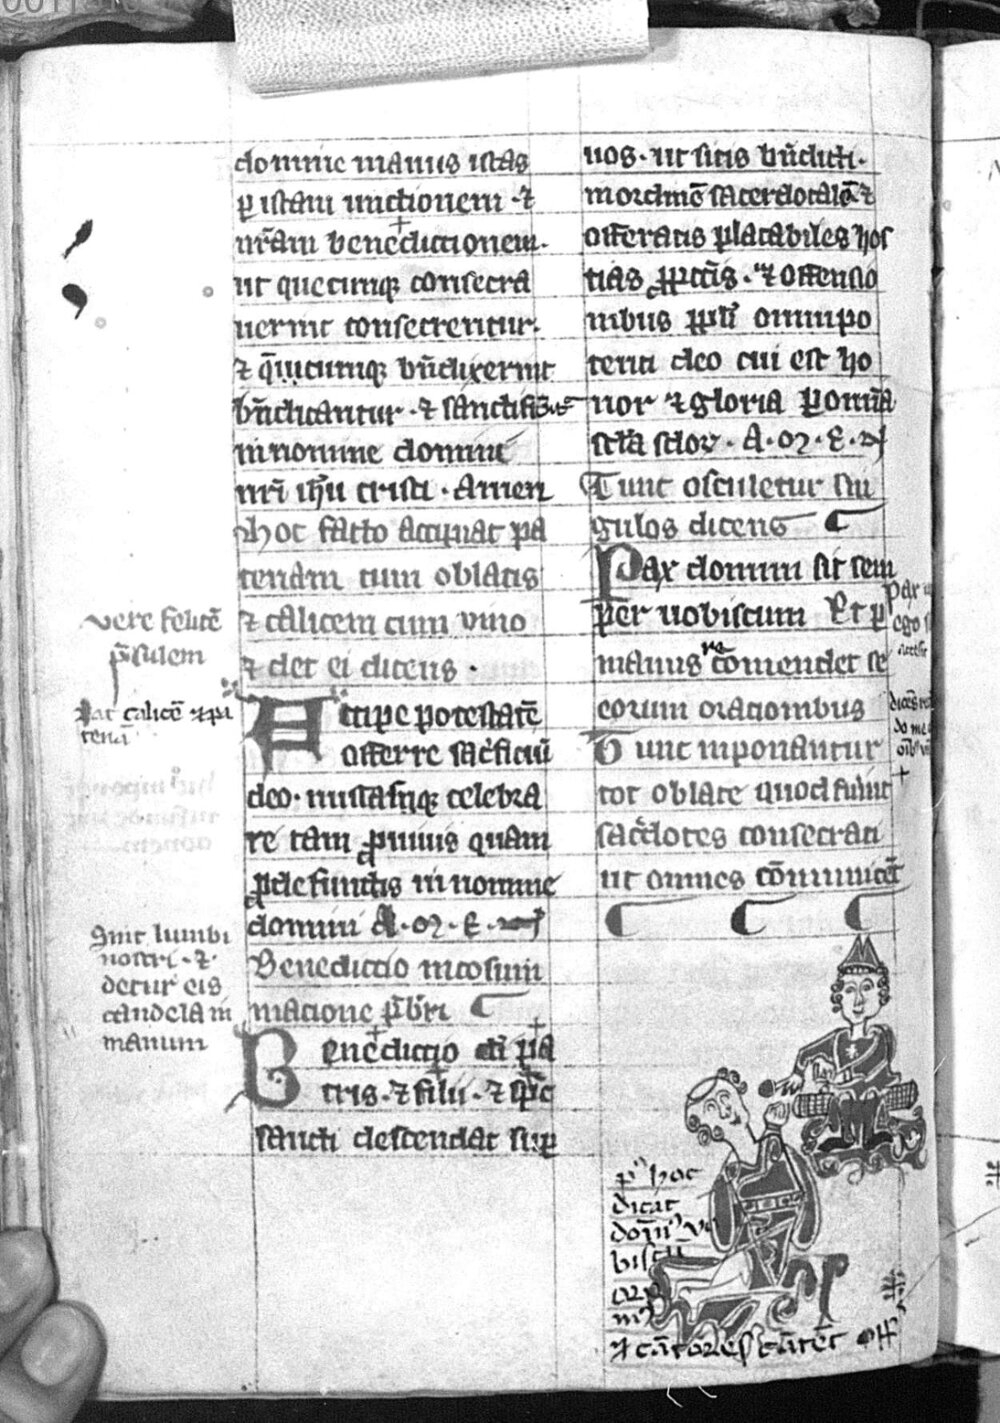 domine manus istas
ꝑ istam unctionem ⁊
nr̄am benedictionem.
ut quecumqꝫ consecra
uerint consecrentur.
⁊ q̄cumqꝫ bn̄dixerint
bn̄dicantur ⁊
in nomine domini
nr̄i ih̄u cristi · Amen
hoc facto accipiat pa
tenam cum oblatis
⁊ calicem cum vino
⁊ det ei dicens ·
Accipe potestatē
offerre sac̄ficiū
deo · missasqꝫ celebra
re tam ꝓ uiuis quam
ꝓ defunctis in nomine
domini A · m · e · n
Benedictio in consum
macione p̄bri
Benedictio di pa
tris · ⁊ filii · ⁊ sp̄c
sancti descendat sup
uos · ut sitis bn̄dicti ·
in ordinē sacerdotalē ⁊
offeratis placabiles hos
tias ꝓ pccīs · ⁊ offensio
nibus ppl̄i omnipo
tenti deo cui est ho
nor ⁊ gloria ꝑ omīa
scl̄a sclorꝝ · A · m · e · n
Tunc osculetur sin
gulos dicens
Pax domini sit sem
per uobiscum Et p
manus comendet se
eorum orationibus
Tunc inponantur
tot oblate quod sunt
sac̄dotes consecrati
ut omnes cōmunicēt
vere felicē
p̄sulem
calicē ⁊ pa
tena
Sint lumbi
nostri · ⁊ ·
detur eis
candela in
manum
pax
ego
pꝰ hoc
dicat
dom̄i vo
biscū
⁊ cātores cātēt off